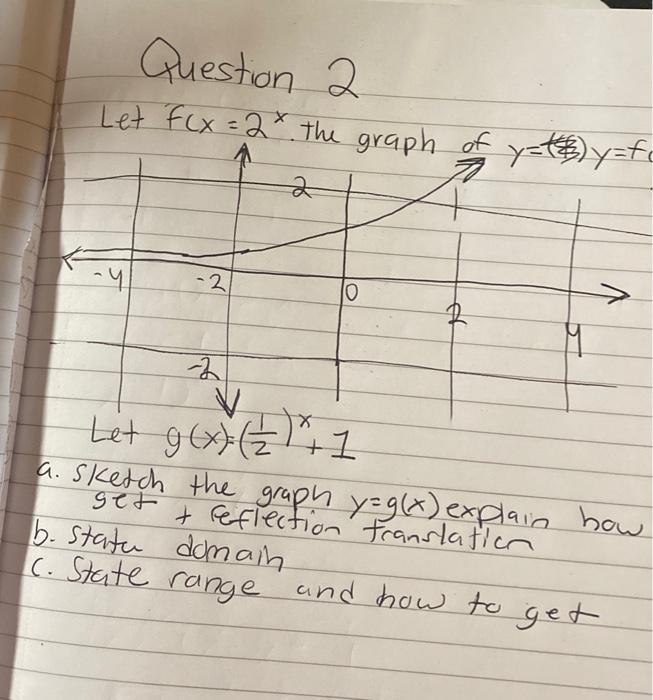 Question 2
Let f(x = 2^x. the graph of y= y=f(
2
-4 -2 0 2 4
-2
Let g(x)=(1/2)^x+1
a. sketch the graph y=g(x) explain how
get + reflection translation
b. state domain
c. State range and how to get